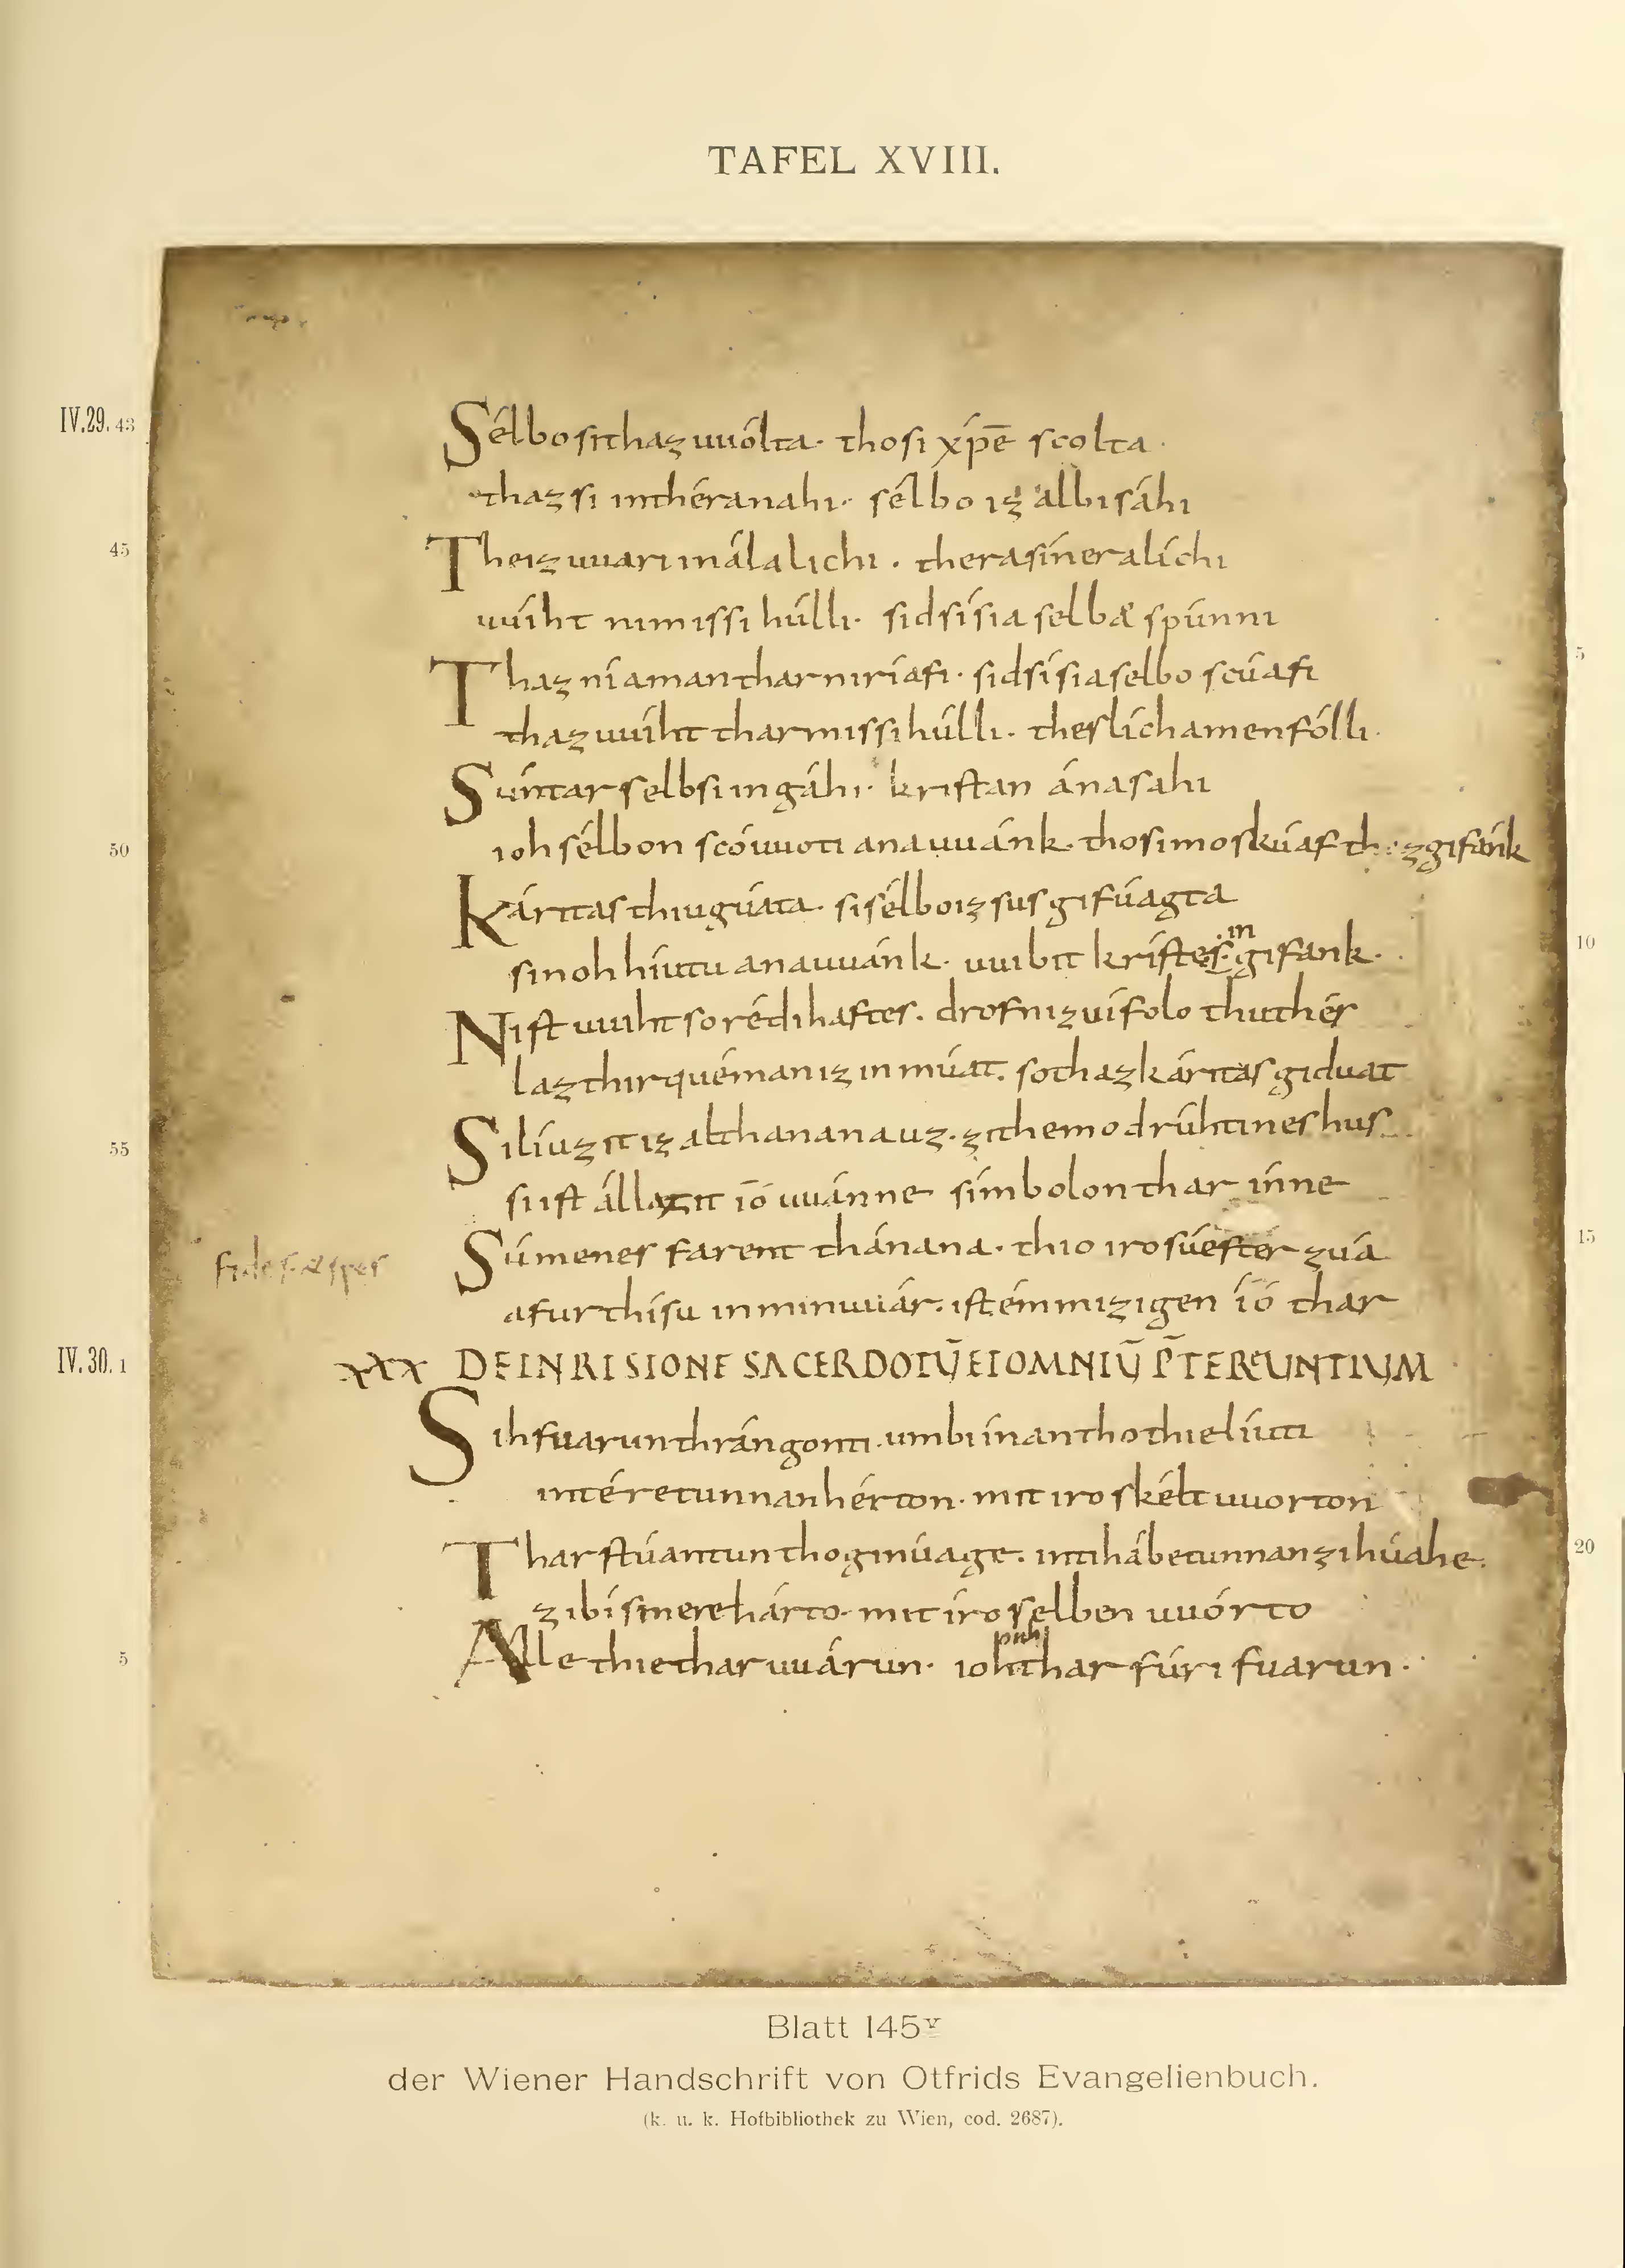 TAFEL XVIII.
IV.29. 43 Sélbo si thaz uuólta · tho si xp̄e scolta ·
thaz si in théra nahi · sélbo iz al bisáhi
45 Theiz uuari in ála lichi · thera sínera líchi
uuiht ni missihúlli · sid si sia selbæ spúnni
Thaz níaman thar ni ríafi · sid si sia selbo scúafi 5
thaz uuiht thar missihúlli · thes líchamen fólli ·
Súntar selb si in gáhi · kristan ánasahi
50 ioh sélbon scóuuoti ana uuánk · tho si imo skúaf thaz gifánk
Káritas thiu gúata · si sélbo iz sus gifúagta
si noh híutu ana uuánk · uuibit kristes in gifank · 10
Nist uuiht so rédihaftes · drof ni zuífolo thu thés
laz thir quéman iz in múat · so thaz káritas giduat
55 Si líuzit iz al thanana uz · zi themo drúhtines hus
si ist állazit ío uuánne símbolon thar ínne
fides et spes Súmenes farent thánana · thio iro súester zua 15
afur thísu in min uuár · ist émmizigen ío thar
IV. 30. 1 XXX DE INRISIONE SACERDOTŪ ET OMNIŪ P̄TEREUNTIUM
Sih fuarun thrángonti · umbi ínan tho thie líuti
intéretun nan hérton · mit iro skélt uuorton
Thar stúantun tho ginúage · inti hábetun nan zi húahe · 20
zi bísmere hárto · mit íro selben uuórto
5 Alle thie thar uuárun · ioh thar fúri fuarun ·
Blatt 145v
der Wiener Handschrift von Otfrids Evangelienbuch.
(k. u. k. Hofbibliothek zu Wien, cod. 2687).